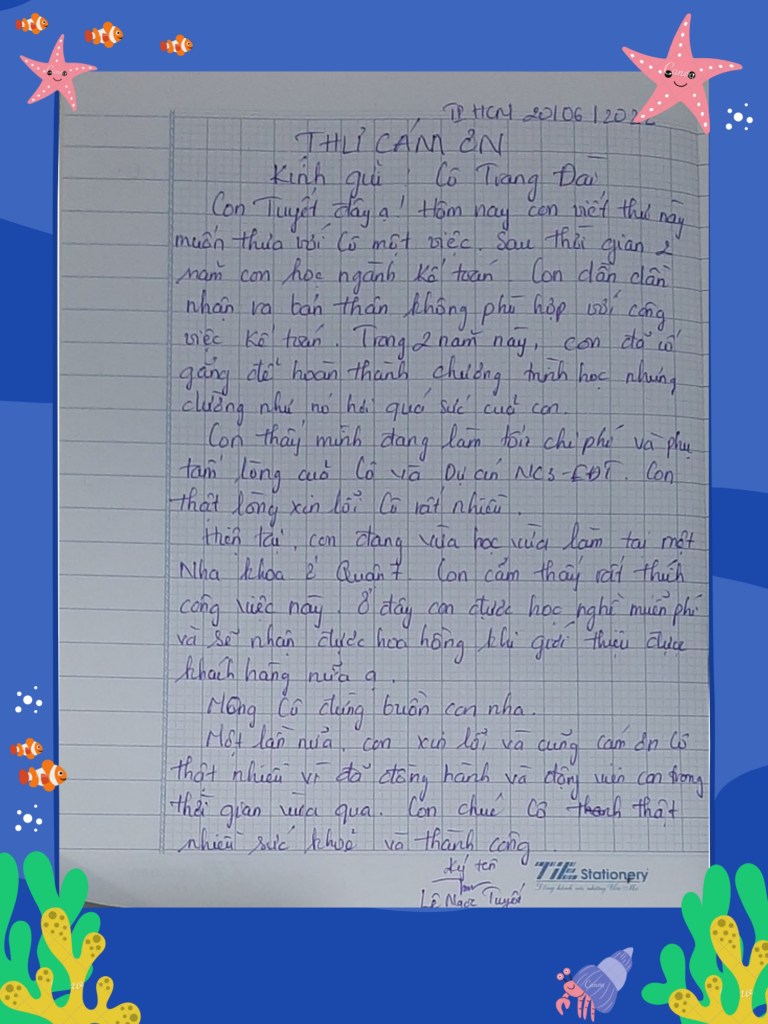 TP HCM 20/06/202
THƯ CÁM ƠN
Kính gửi : Cô Trang Đài
Con Tuyết đây ạ! Hôm nay con viết thư này
muốn thưa với Cô một việc. Sau thời gian 2
năm con học ngành Kế toán. Con dần dần
nhận ra bản thân không phù hợp với công
việc Kế toán. Trong 2 năm này, con đã cố
gắng để hoàn thành chương trình học nhưng
dường như nó hơi quá sức của con.
Con thấy mình đang làm tốn chi phí và phụ
tấm lòng của Cô và Dự án NCS-EĐT. Con
thật lòng xin lỗi Cô rất nhiều.
Hiện tại, con đang vừa học vừa làm tại một
Nha khoa ở Quận 7. Con cảm thấy rất thích
công việc này. Ở đây con được học nghề miễn phí
và sẽ nhận được hoa hồng khi giới thiệu được
khách hàng nữa ạ.
Mong Cô đừng buồn con nha.
Một lần nữa, con xin lỗi và cũng cám ơn Cô
thật nhiều vì đã đồng hành và động viên con trong
thời gian vừa qua. Con chúc Cô thật
nhiều sức khoẻ và thành công
Ký tên
Lê Ngọc Tuyết
TiE Stationery